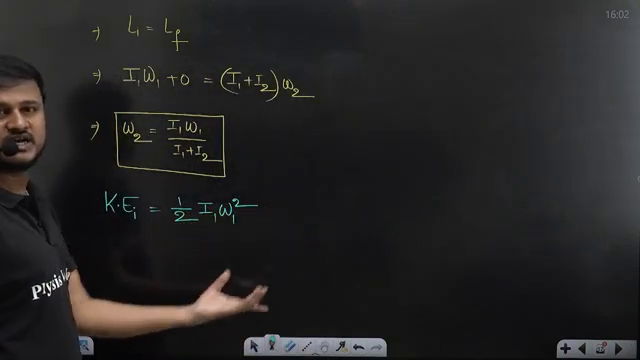 16:02
⇒ L₁ = L_f
⇒ I₁ω₁ + 0 = (I₁+I₂)ω₂
⇒ ω₂ = I₁ω₁ / I₁+I₂
K.Eᵢ = 1/2 I₁ω₁²
Physics